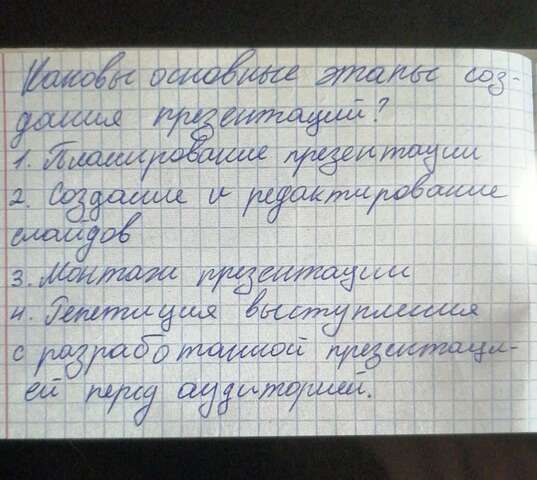 Каковы основные этапы соз-
дания презентаций?
1. Планирование презентации
2. Создание и редактирование
слайдов
3. Монтаж презентации
4. Репетиция выступления
с разработанной презентаци-
ей перед аудиторией.